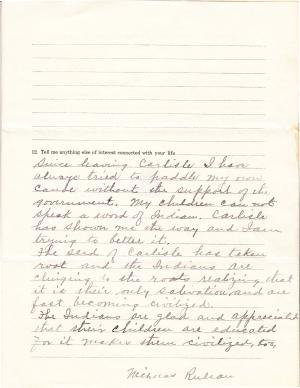 12. Tell me anything else of interest connected with your life
Since leaving Carlisle I have
always tried to paddle my own
canoe without the support of the
government. My children can not
speak a word of Indian. Carlisle
has shown me the way and I am
trying to better it.
The seed of Carlisle has taken
root and the Indians are
clinging to the roots realizing that
it is their only salvation, and are
fast becoming civilized.
The Indians are glad and appreciate
that their children are educated
for it makes them civilized, too,
Nicholas